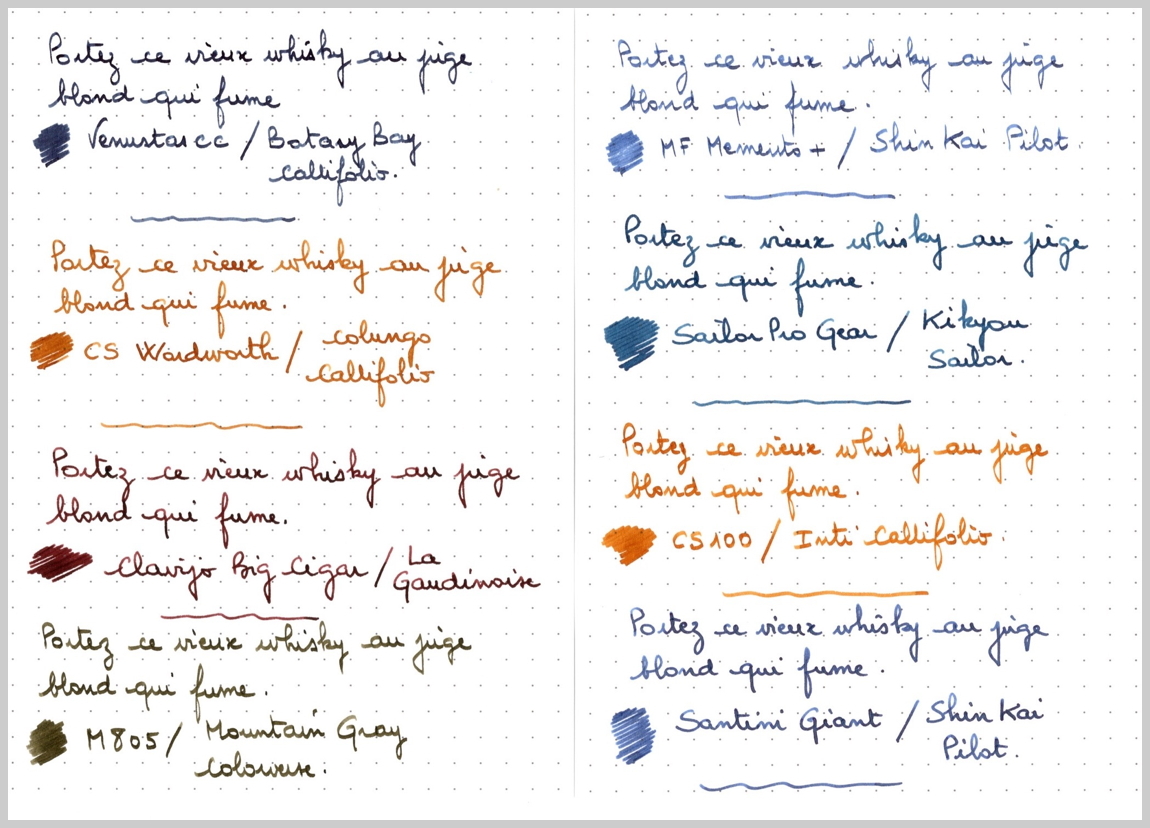 Portez ce vieux whisky au juge
blond qui fume
Venustas cc / Botany Bay
Callifolio.
Portez ce vieux whisky au juge
blond qui fume.
CS Wordworth / Colungo
Callifolio
Portez ce vieux whisky au juge
blond qui fume.
Clavijo Big Cigar / La
Gaudinoise
Portez ce vieux whisky au juge
blond qui fume.
M805 / Mountain Gray
Coloverse.
Portez ce vieux whisky au juge
blond qui fume.
MF Memento + / Shin Kai Pilot.
Portez ce vieux whisky au juge
blond qui fume.
Sailor Pro Gear / Kikyou
Sailor.
Portez ce vieux whisky au juge
blond qui fume.
CS100 / Inti Callifolio.
Portez ce vieux whisky au juge
blond qui fume.
Santini Giant / Shin Kai
Pilot.